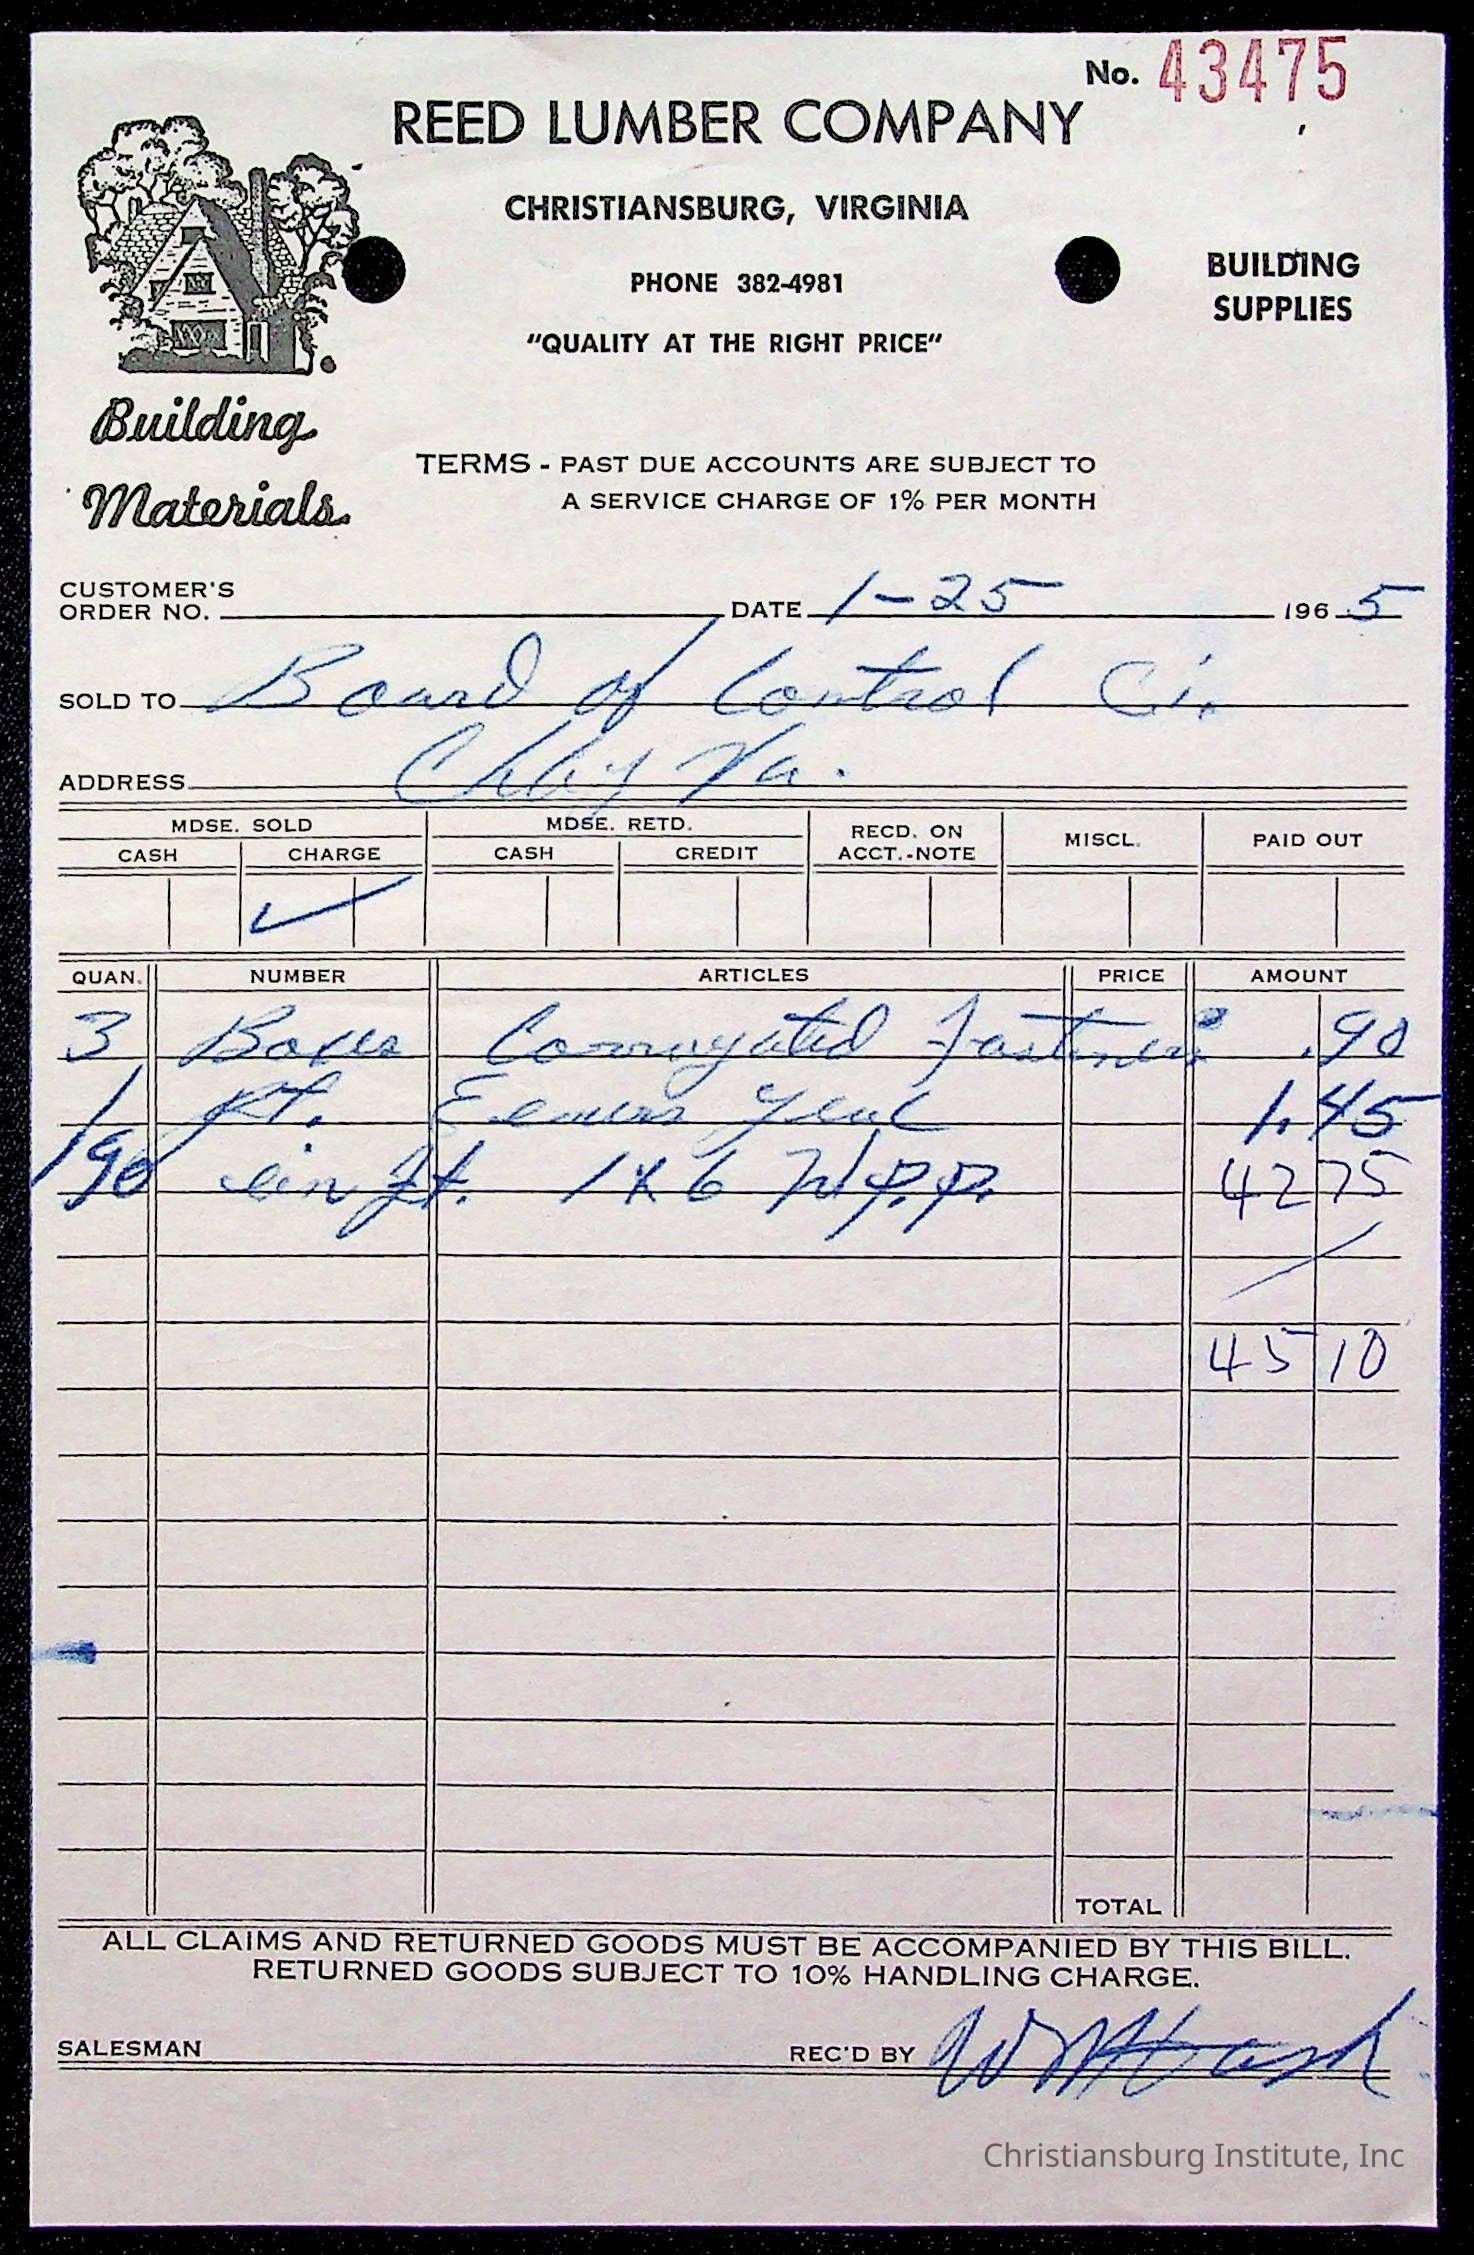 No. 43475
REED LUMBER COMPANY
CHRISTIANSBURG, VIRGINIA
PHONE 382-4981
"QUALITY AT THE RIGHT PRICE"
BUILDING
SUPPLIES
Building
Materials
TERMS - PAST DUE ACCOUNTS ARE SUBJECT TO
A SERVICE CHARGE OF 1% PER MONTH
CUSTOMER'S
ORDER NO. DATE 1-25 1965
SOLD TO Board of Control C.i.
ADDRESS Chbg Va.
MDSE. SOLD MDSE. RETD. RECD. ON ACCT.-NOTE MISCL. PAID OUT
CASH CHARGE CASH CREDIT
QUAN. NUMBER ARTICLES PRICE AMOUNT
3 Boxes Corrugated Fasteners .90
1 1.45
190 lin ft. 1x6 W.P.P. 42 75
45 10
TOTAL
ALL CLAIMS AND RETURNED GOODS MUST BE ACCOMPANIED BY THIS BILL.
RETURNED GOODS SUBJECT TO 10% HANDLING CHARGE.
SALESMAN REC'D BY
Christiansburg Institute, Inc